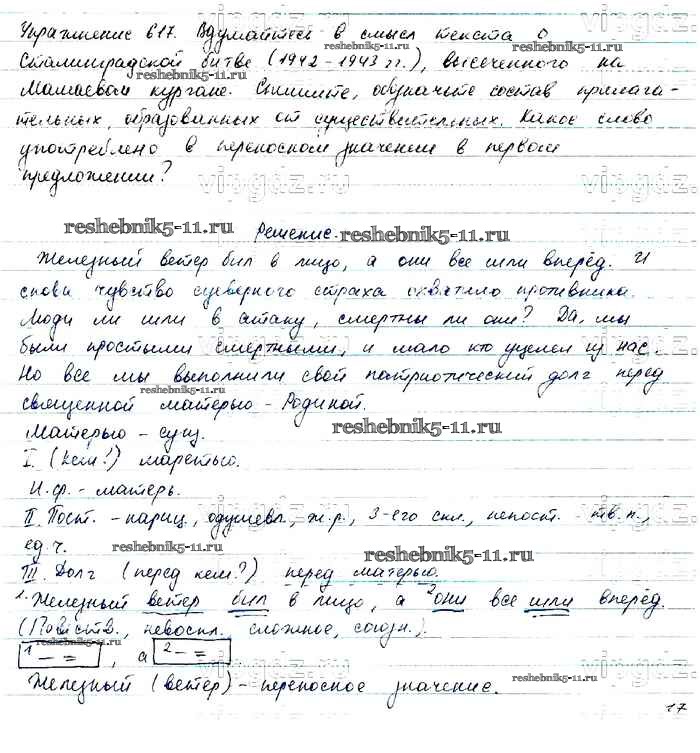 Упражнение 617. Вдумайтесь в смысл текста о
Сталинградской битве (1942-1943 гг.), высеченного на
Мамаевом кургане. Спишите, обозначьте состав прилага-
тельных, образованных от существительных. Какое слово
употреблено в переносном значении в первом
предложении?
reshebnik5-11.ru
Решение.
reshebnik5-11.ru
Железный ветер бил в лицо, а они все шли вперёд. И
снова чувство суеверного страха охватило противника.
Люди ли шли в атаку, смертны ли они? Да, мы
были простыми смертными, и мало кто уцелел из нас.
Но все мы выполнили свой патриотический долг перед
священной матерью - Родиной.
Матерью - сущ.
reshebnik5-11.ru
I. (Кем?) маретью.
Н.ф. - матерь.
II. Пост. - нариц., одушевл., ж.р., 3-его скл., непост. тв.п.,
ед.ч.
reshebnik5-11.ru
reshebnik5-11.ru
III. Долг (перед кем?) перед матерью.
1. Железный ветер бил в лицо, а 2они все шли вперёд.
(Повеств., невоскл., сложное, союзн.).
reshebnik5-11.ru
1 – = , а 2 – =
Железный (ветер) - переносное значение.
reshebnik5-11.ru
17